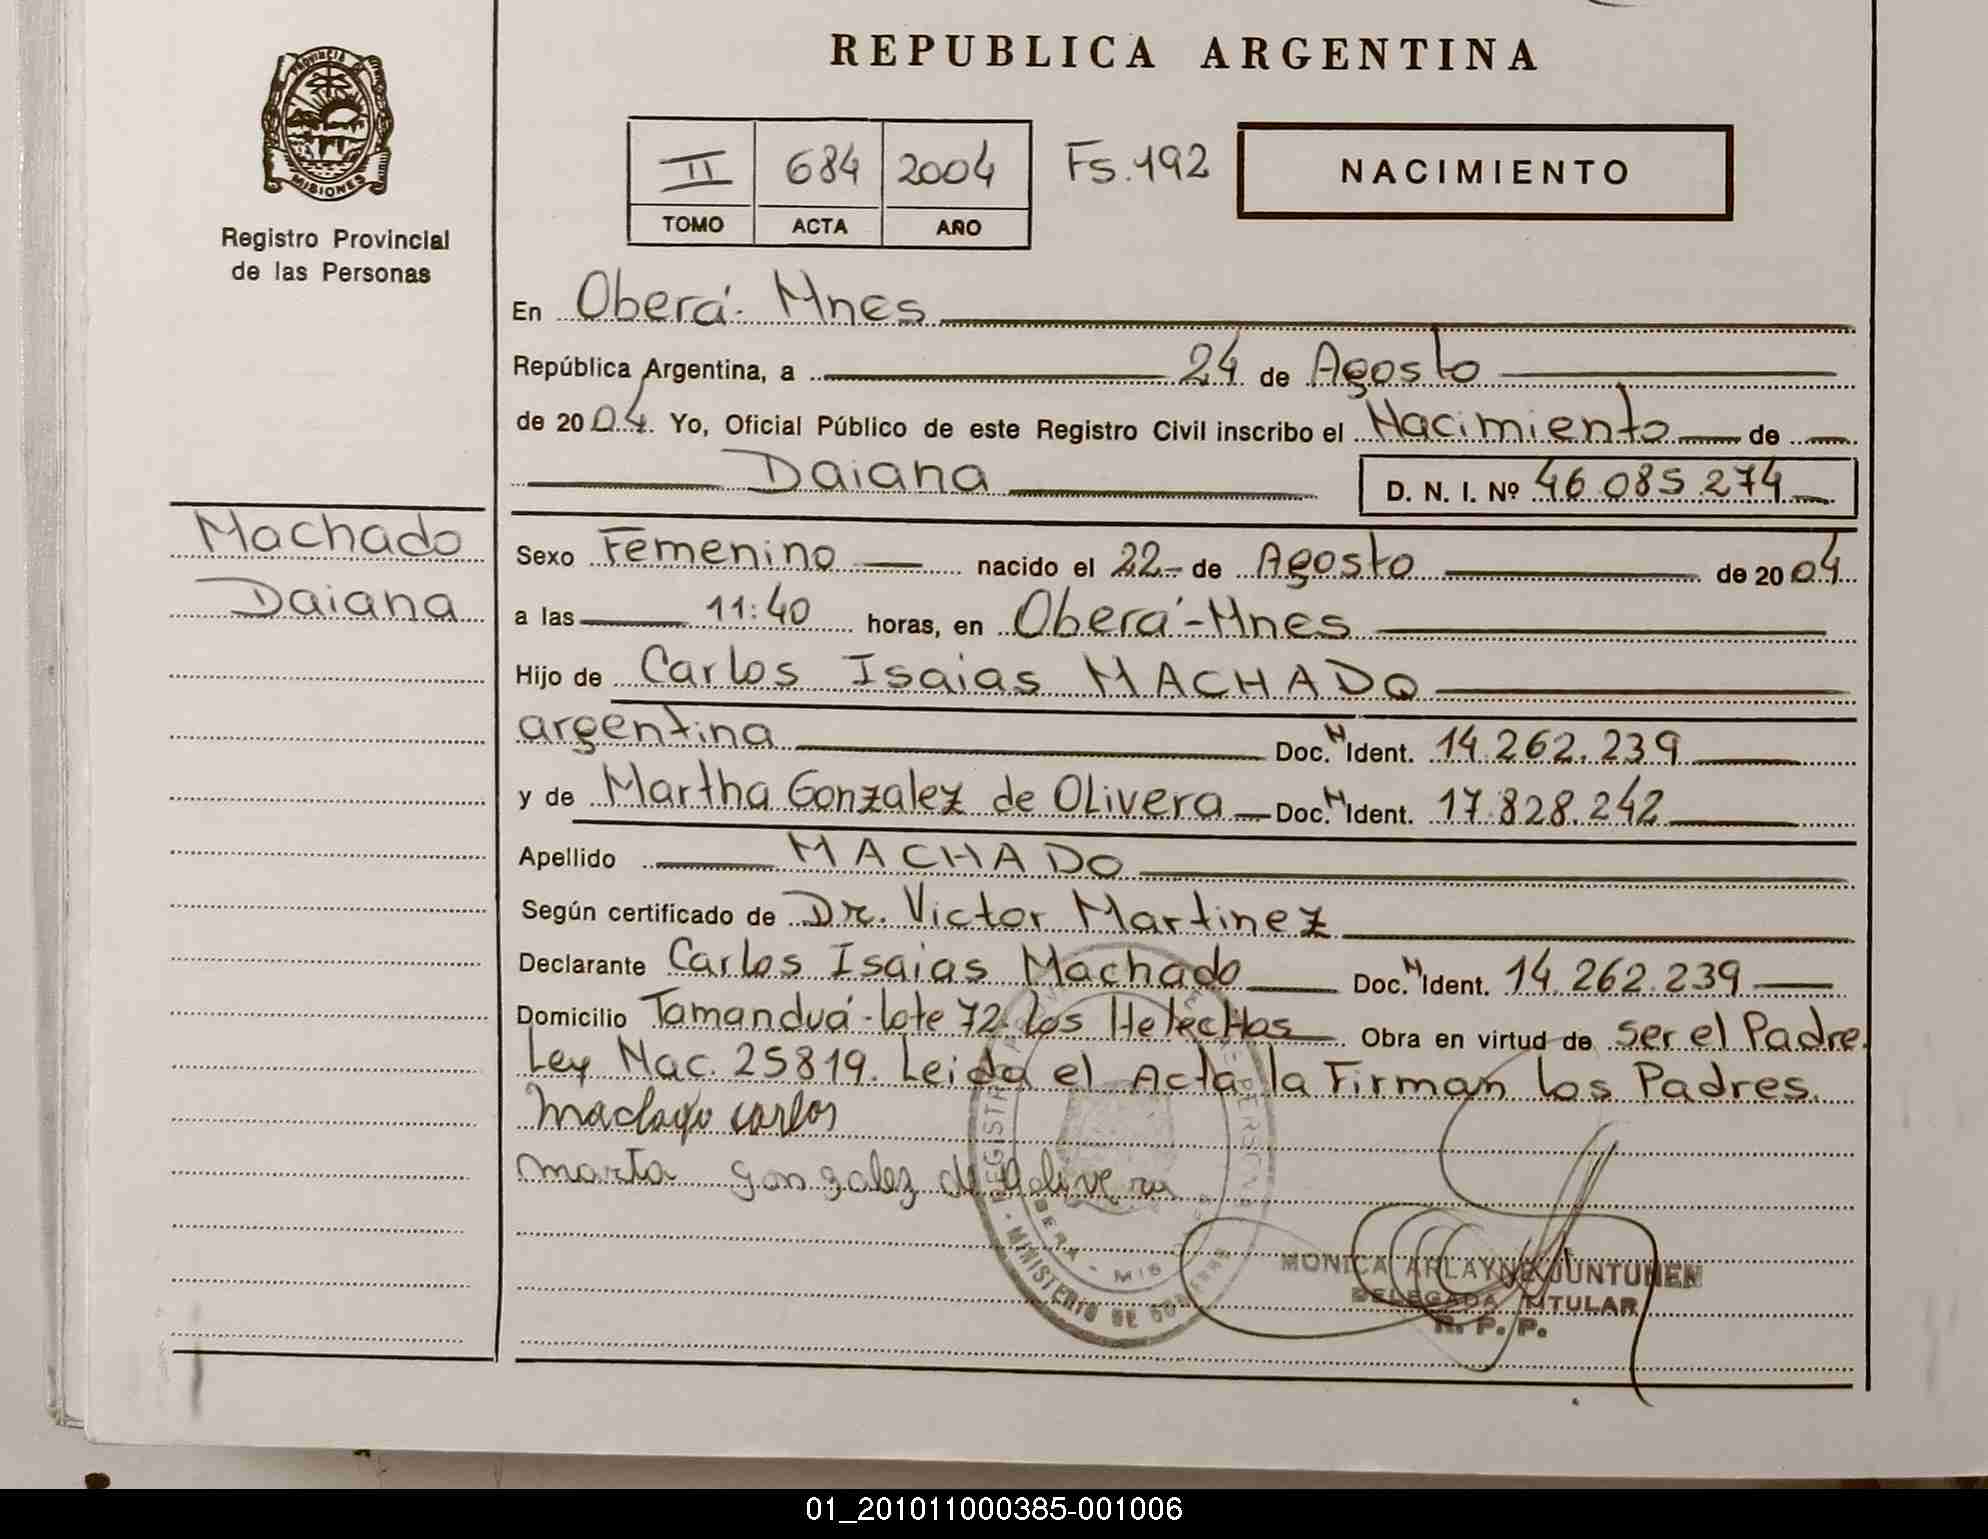 REPUBLICA ARGENTINA
PROVINCIA DE
MISIONES
Registro Provincial
de las Personas
II 684 2004 Fs.192
TOMO ACTA AÑO
NACIMIENTO
En Oberá- Mnes
República Argentina, a 24 de Agosto
de 2004. Yo, Oficial Público de este Registro Civil inscribo el Nacimiento de
Daiana D. N. I. Nº 46 085 274
Machado
Daiana
Sexo Femenino nacido el 22 de Agosto de 2004
a las 11:40 horas, en Oberá-Mnes
Hijo de Carlos Isaias MACHADO
argentina Doc. N Ident. 14.262.239
y de Martha Gonzalez de Olivera Doc. N Ident. 17.828.242
Apellido MACHADO
Según certificado de Dr. Victor Martinez
Declarante Carlos Isaias Machado Doc. N Ident. 14.262.239
Domicilio Tamanduá-lote 72. Los Helechos Obra en virtud de ser el Padre.
Ley Nac. 25819. Leida el Acta la Firman los Padres.
carlos
marta gonzalez de olivera
REGISTRO PERSONAS
MINISTERIO DE GOBIERNO
OBERA - MIS
MONICA ARLAYNE JUNTUNEN
DELEGADA TITULAR
R. P. P.
01_201011000385-001006